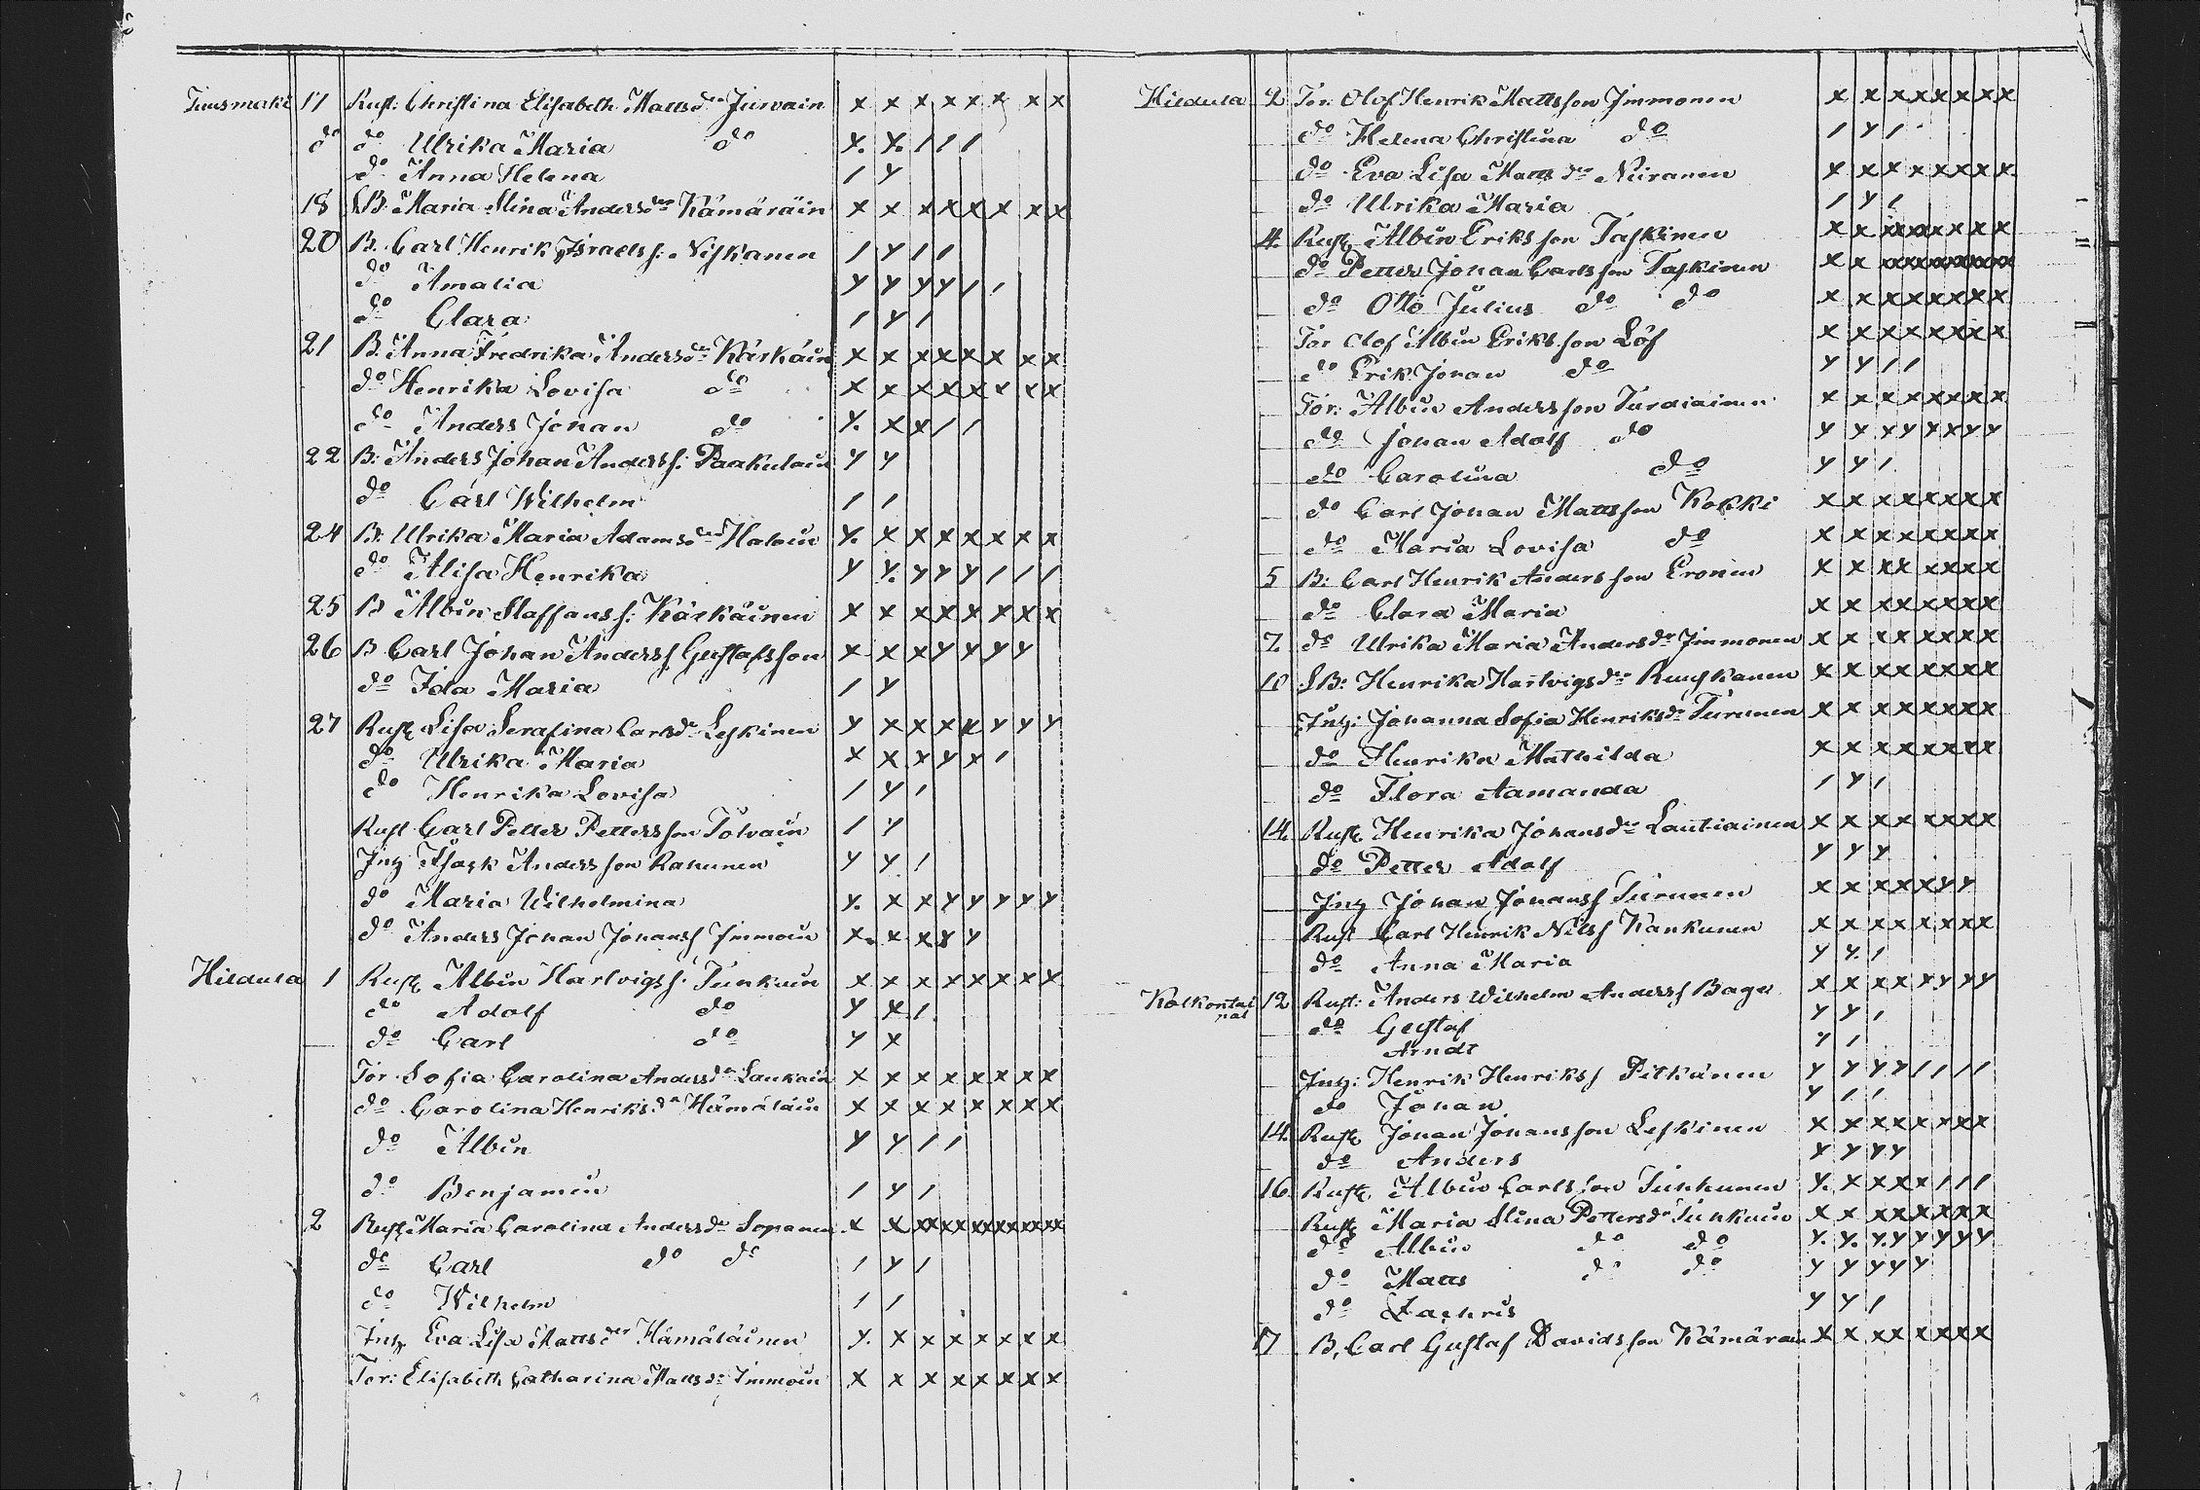 Tuusmaki 17 Rust: Christina Elisabeth Mattsdr Jurvain x x x x x x x x
do do Ulrika Maria do y. y. / / /
do Anna Helena / y
18 SB. Maria Stina Andersdr Kämäräin x x x x x x x x
20 B. Carl Henrik Israelss: Niskanen / y / /
do Amalia y y y y / /
do Clara / y /
21 B. Anna Fredrika Andersdr Kärkäin x x x x x x x x
do Henrika Lovisa do x x x x x x x x
do Anders Johan do y. x x / /
22 B: Anders Johan Anderss: Paakulain y y
do Carl Wilhelm / /
24 B. Ulrika Maria Adamsdr Haloin y. x x x x x x x
do Alisa Henrika y y. y y y / / /
25 B Albin Staffanss: Kärkäinen x x x x x x x x
26 B Carl Johan Anderss Gustafsson x x x y y y y
do Ida Maria / y
27 Rust Lisa Serafina Carlsdr Leskinen y x x x x y y y
do Ulrika Maria x x x y x /
do Henrika Lovisa / y /
Rust Carl Petter Pettersson Tolvain / y
Inh Isack Andersson Rahunen y y /
do Maria Wilhelmina y. x x y y y y y
do Anders Johan Johanss Immoin x. x x y y
Hirdula 1 Rust Albin Hartvigss: Tunkuin x x x x x x x x
do Adolf do y x /
do Carl do y x
Tor. Sofia Carolina Andersdr Laukain x x x x x x x x
do Carolina Henriksdr Hämäläin x x x x x x x x
do Albin y y / /
do Benjamin / y /
2 Rust Maria Carolina Andersdr Sopanen x x xx xx xx xx xx xx
do Carl do do / y /
do Wilhelm / /
Inh Eva Lisa Mattsdr Hämäläinen y. x x x x x x x
Tor: Elisabeth Catharina Mattsdr Immoin x x x x x x x x
Hirdula 2 Tor. Olof Henrik Mattsson Immonen x x x x x x x x
do Helena Christina do / y /
do Eva Lisa Mattsdr Niiranen x x x x x x x x
do Ulrika Maria / y /
4. Rust Albin Eriksson Taskinen x x xx xx x x x x
do Petter Johan Carlsson Taskinen x x xx xx xx xx xx xx
do Otto Julius do do x x x x x x x x
Tor Olof Albin Eriksson Löf x x x x x x x x
do Erik Johan do y y / /
Tor: Albin Andersson Turdiainen x x x x x x x x
do Johan Adolf do y y x y y x y y
do Carolina do y y /
do Carl Johan Mattsson Kokki x x x x x x x x
do Maria Lovisa do x x x x x x x x
5 B: Carl Henrik Andersson Eronen x x x x x x x x
do Clara Maria x x x x x x x x
7. do Ulrika Maria Andersdr Immonen x x x x x x x x
10 SB: Henrika Hartvigsdr Ruuskanen x x x x x x x x
Inh: Johanna Sofia Henriksdr Turunen x x x x x x x x
do Henrika Mathilda x x x x x x x x
do Flora Aamanda / y /
14. Rust Henrika Johansdr Lautiainen x x x x x x x x
do Petter Adolf y y y
Inh Johan Johanss Turunen x x x x x y y
Rust Carl Henrik Nilss Kankunen x x x x x x x x
do Anna Maria y y. /
12 Rust: Anders Wilhelm Anderss Bager x x x x x y y y
do Gustaf y y /
Arndt y /
Inh: Henrik Henrikss Pitkänen y y y y / / / /
do Johan y / /
14. Rust Johan Johansson Leskinen x x x x x x x x
do Anders y y y y
16. Rust Albin Carlsson Tunkunen y. x x x x / / /
Rust Maria Stina Pettersdr Tunkuin x x x x x x x x
do Albin do do y. y. y. y y y y y
do Matts do do y y y y y
do Zachris y y /
17 B. Carl Gustaf Davidsson Kämärain x x x x x x x x